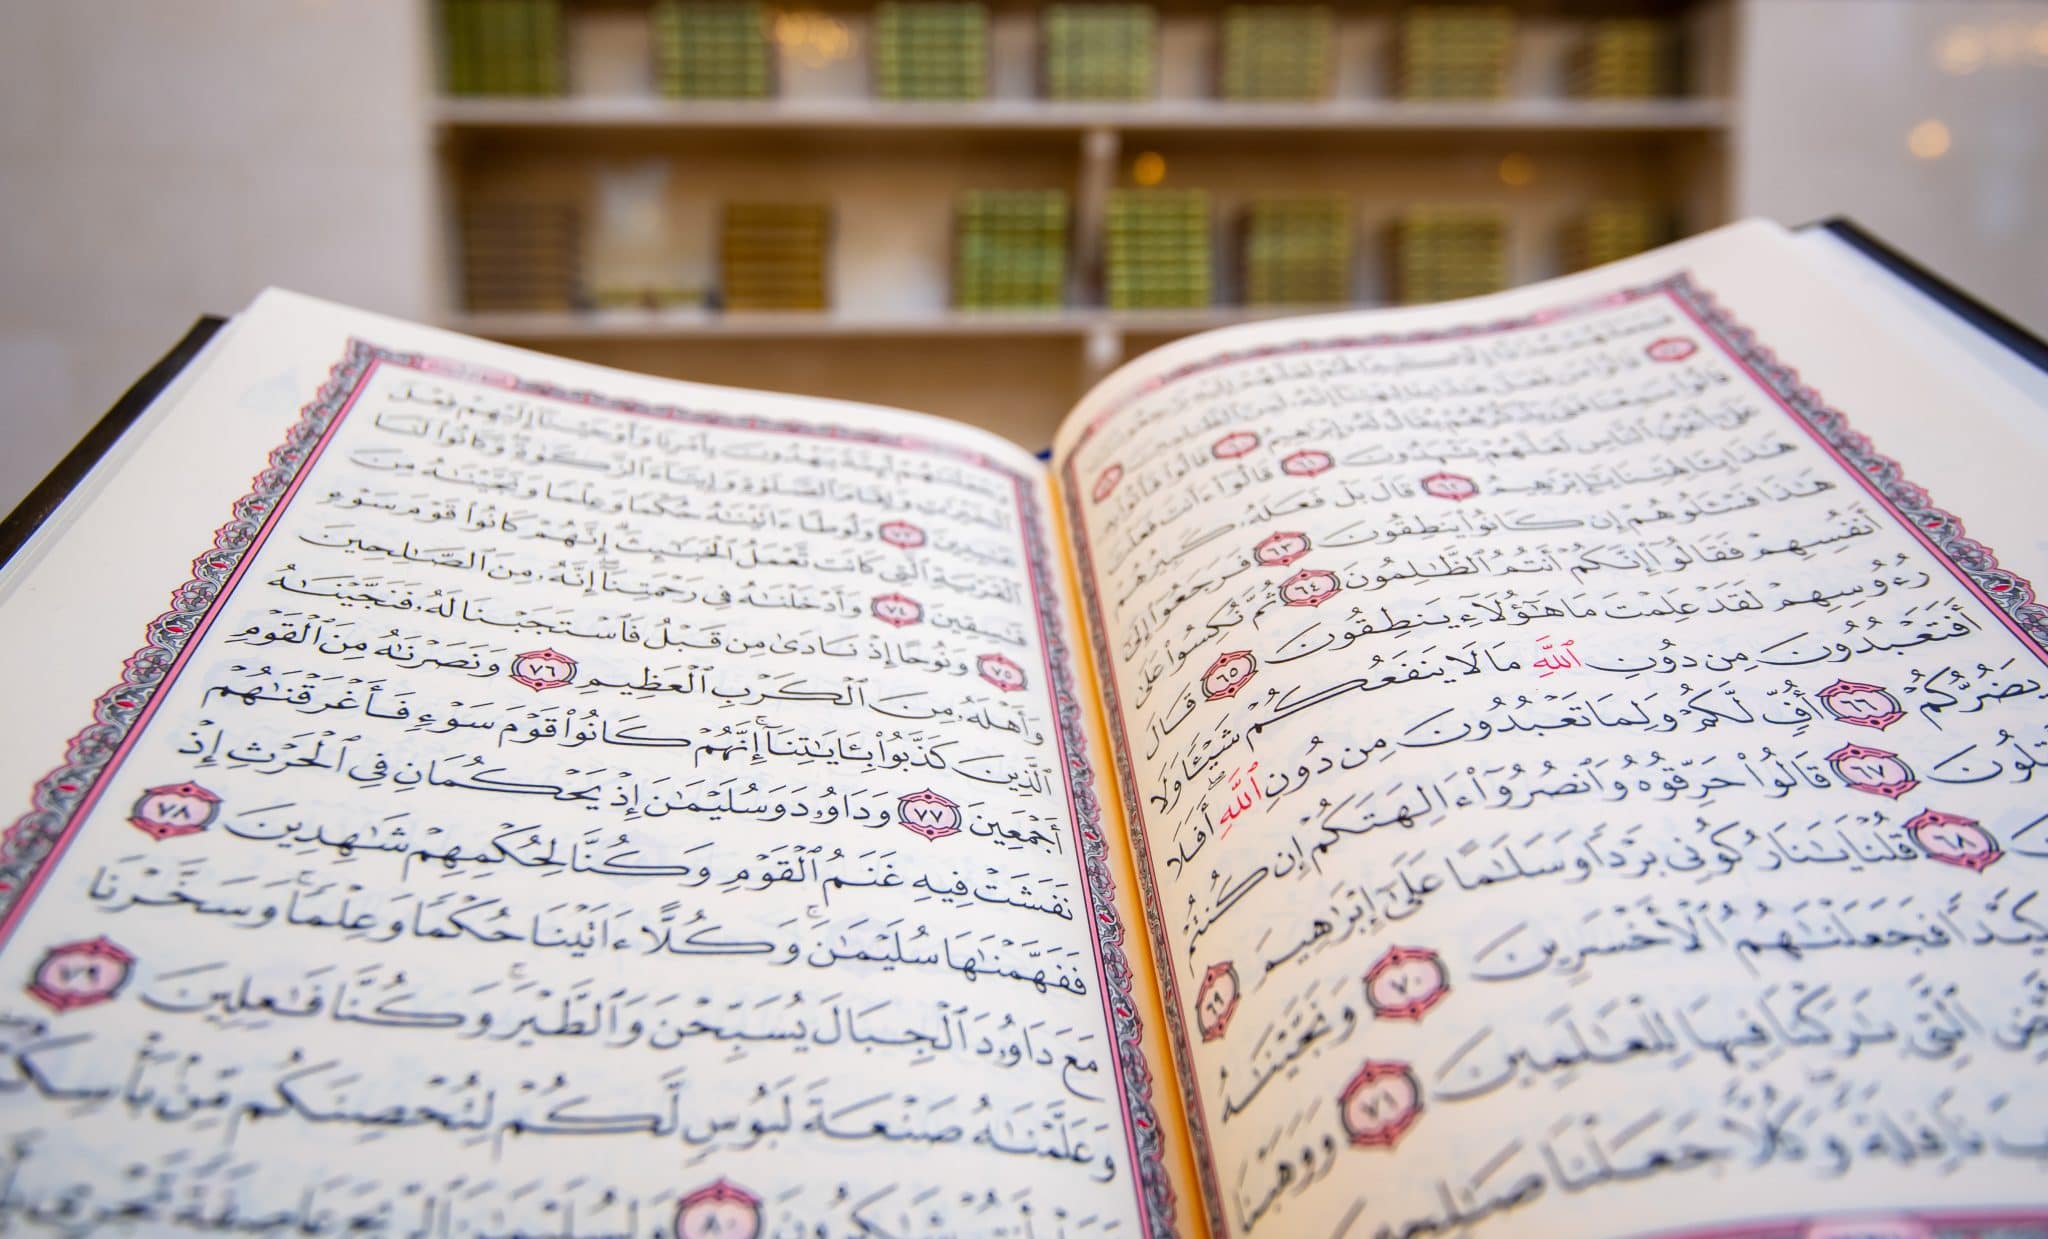 فَجَعَلَهُمْ جُذَٰذًا إِلَّا كَبِيرًا لَّهُمْ لَعَلَّهُمْ إِلَيْهِ يَرْجِعُونَ
قَالُوا۟ مَن فَعَلَ هَٰذَا بِـَٔالِهَتِنَآ إِنَّهُۥ لَمِنَ ٱلظَّٰلِمِينَ
قَالُوا۟ سَمِعْنَا فَتًى يَذْكُرُهُمْ يُقَالُ لَهُۥٓ إِبْرَٰهِيمُ ٦٠ قَالُوا۟ فَأْتُوا۟ بِهِۦ
عَلَىٰٓ أَعْيُنِ ٱلنَّاسِ لَعَلَّهُمْ يَشْهَدُونَ ٦١ قَالُوٓا۟ ءَأَنتَ فَعَلْتَ
هَٰذَا بِـَٔالِهَتِنَا يَٰٓإِبْرَٰهِيمُ ٦٢ قَالَ بَلْ فَعَلَهُۥ كَبِيرُهُمْ
هَٰذَا فَسْـَٔلُوهُمْ إِن كَانُوا۟ يَنطِقُونَ ٦٣ فَرَجَعُوٓا۟ إِلَىٰٓ
أَنفُسِهِمْ فَقَالُوٓا۟ إِنَّكُمْ أَنتُمُ ٱلظَّٰلِمُونَ ٦٤ ثُمَّ نُكِسُوا۟ عَلَىٰ
رُءُوسِهِمْ لَقَدْ عَلِمْتَ مَا هَٰٓؤُلَآءِ يَنطِقُونَ ٦٥ قَالَ
أَفَتَعْبُدُونَ مِن دُونِ ٱللَّهِ مَا لَا يَنفَعُكُمْ شَيْـًٔا وَلَا
يَضُرُّكُمْ ٦٦ أُفٍّ لَّكُمْ وَلِمَا تَعْبُدُونَ مِن دُونِ ٱللَّهِ ۖ أَفَلَا
ـقِلُونَ ٦٧ قَالُوا۟ حَرِّقُوهُ وَٱنصُرُوٓا۟ ءَالِهَتَكُمْ إِن كُنتُمْ
٦٨ قُلْنَا يَٰنَارُ كُونِى بَرْدًا وَسَلَٰمًا عَلَىٰٓ إِبْرَٰهِيمَ ٦٩
كَيْدًا فَجَعَلْنَٰهُمُ ٱلْأَخْسَرِينَ ٧٠ وَنَجَّيْنَٰهُ
ٱلَّتِى بَٰرَكْنَا فِيهَا لِلْعَٰلَمِينَ ٧١ وَوَهَبْنَا
نَافِلَةً ۖ وَكُلًّا جَعَلْنَا صَٰلِحِينَ
وَجَعَلْنَٰهُمْ أَئِمَّةً يَهْدُونَ بِأَمْرِنَا وَأَوْحَيْنَآ إِلَيْهِمْ فِعْلَ
ٱلْخَيْرَٰتِ وَإِقَامَ ٱلصَّلَوٰةِ وَإِيتَآءَ ٱلزَّكَوٰةِ ۖ وَكَانُوا۟ لَنَا
عَٰبِدِينَ ٧٣ وَلُوطًا ءَاتَيْنَٰهُ حُكْمًا وَعِلْمًا وَنَجَّيْنَٰهُ مِنَ
ٱلْقَرْيَةِ ٱلَّتِى كَانَت تَّعْمَلُ ٱلْخَبَٰٓئِثَ ۗ إِنَّهُمْ كَانُوا۟ قَوْمَ سَوْءٍ
فَٰسِقِينَ ٧٤ وَأَدْخَلْنَٰهُ فِى رَحْمَتِنَآ ۖ إِنَّهُۥ مِنَ ٱلصَّٰلِحِينَ
٧٥ وَنُوحًا إِذْ نَادَىٰ مِن قَبْلُ فَٱسْتَجَبْنَا لَهُۥ فَنَجَّيْنَٰهُ
وَأَهْلَهُۥ مِنَ ٱلْكَرْبِ ٱلْعَظِيمِ ٧٦ وَنَصَرْنَٰهُ مِنَ ٱلْقَوْمِ
ٱلَّذِينَ كَذَّبُوا۟ بِـَٔايَٰتِنَآ ۚ إِنَّهُمْ كَانُوا۟ قَوْمَ سَوْءٍ فَأَغْرَقْنَٰهُمْ
أَجْمَعِينَ ٧٧ وَدَاوُۥدَ وَسُلَيْمَٰنَ إِذْ يَحْكُمَانِ فِى ٱلْحَرْثِ إِذْ
نَفَشَتْ فِيهِ غَنَمُ ٱلْقَوْمِ وَكُنَّا لِحُكْمِهِمْ شَٰهِدِينَ ٧٨
فَفَهَّمْنَٰهَا سُلَيْمَٰنَ ۚ وَكُلًّا ءَاتَيْنَا حُكْمًا وَعِلْمًا ۚ وَسَخَّرْنَا
مَعَ دَاوُۥدَ ٱلْجِبَالَ يُسَبِّحْنَ وَٱلطَّيْرَ ۚ وَكُنَّا فَٰعِلِينَ ٧٩
وَعَلَّمْنَٰهُ صَنْعَةَ لَبُوسٍ لَّكُمْ لِتُحْصِنَكُم مِّنۢ بَأْسِكُمْ
فَهَلْ أَنتُمْ شَٰكِرُونَ ٨٠ وَلِسُلَيْمَٰنَ ٱلرِّيحَ عَاصِفَةً تَجْرِى